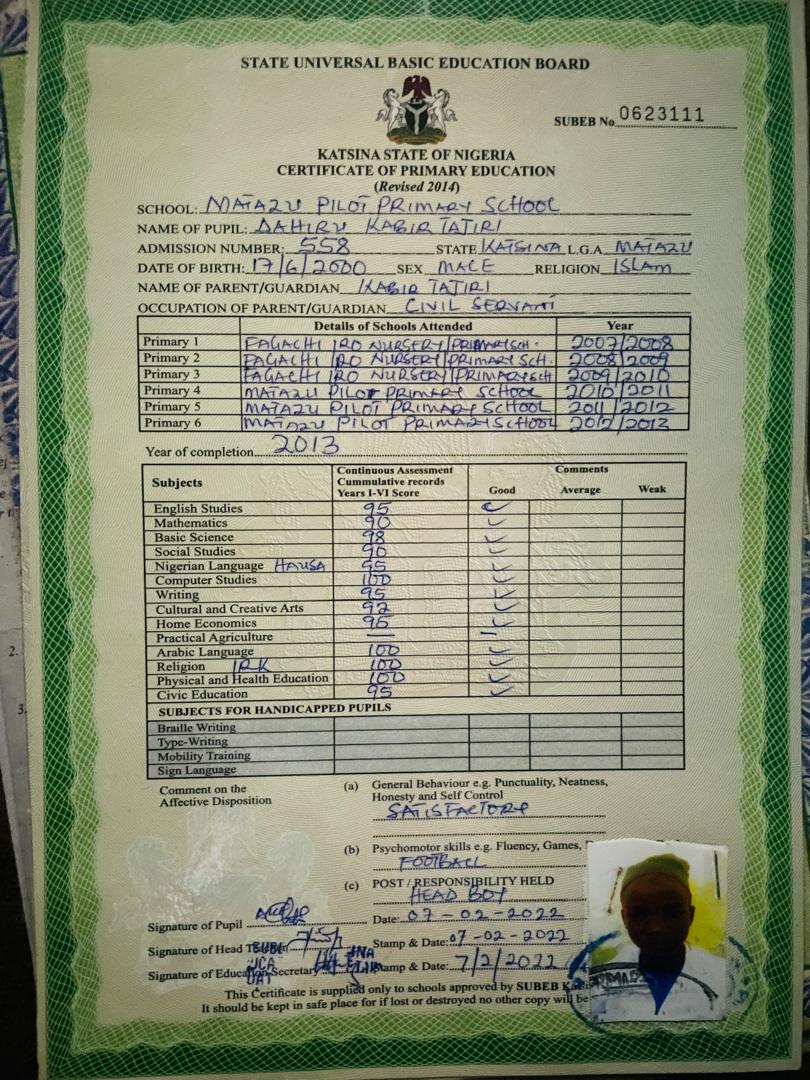 STATE UNIVERSAL BASIC EDUCATION BOARD
SUBEB No 0623111
KATSINA STATE OF NIGERIA
CERTIFICATE OF PRIMARY EDUCATION
(Revised 2014)
SCHOOL: MATAZU PILOT PRIMARY SCHOOL
NAME OF PUPIL: DAHIRU KABIR TATIRI
ADMISSION NUMBER: 558 STATE KATSINA L.G.A MATAZU
DATE OF BIRTH: 17/6/2000 SEX MALE RELIGION ISLAM
NAME OF PARENT/GUARDIAN KABIR TATIRI
OCCUPATION OF PARENT/GUARDIAN CIVIL SERVANT
Details of Schools Attended Year
Primary 1 FAGACHI IRO NURSERY/PRIMARY SCH. 2007/2008
Primary 2 FAGACHI IRO NURSERY/PRIMARY SCH. 2008/2009
Primary 3 FAGACHI IRO NURSERY/PRIMARY SCH 2009/2010
Primary 4 MATAZU PILOT PRIMARY SCHOOL 2010/2011
Primary 5 MATAZU PILOT PRIMARY SCHOOL 2011/2012
Primary 6 MATAZU PILOT PRIMARY SCHOOL 2012/2013
Year of completion 2013
Subjects Continuous Assessment Cummulative records Years I-VI Score Comments Good Average Weak
English Studies 95
Mathematics 90
Basic Science 98
Social Studies 90
Nigerian Language HAUSA 95
Computer Studies 100
Writing 95
Cultural and Creative Arts 92
Home Economics 95
Practical Agriculture —
Arabic Language 100
Religion IRK 100
Physical and Health Education 100
Civic Education 95
SUBJECTS FOR HANDICAPPED PUPILS
Braille Writing
Type-Writing
Mobility Training
Sign Language
Comment on the Affective Disposition
(a) General Behaviour e.g. Punctuality, Neatness,
Honesty and Self Control
SATISFACTORY
(b) Psychomotor skills e.g. Fluency, Games,
FOOTBALL
(c) POST / RESPONSIBILITY HELD
HEAD BOY
Signature of Pupil Date: 07-02-2022
Signature of Head Stamp & Date: 07-02-2022
Signature of Education Secretary Stamp & Date: 7/2/2022
This Certificate is supplied only to schools approved by SUBEB
It should be kept in safe place for if lost or destroyed no other copy will be